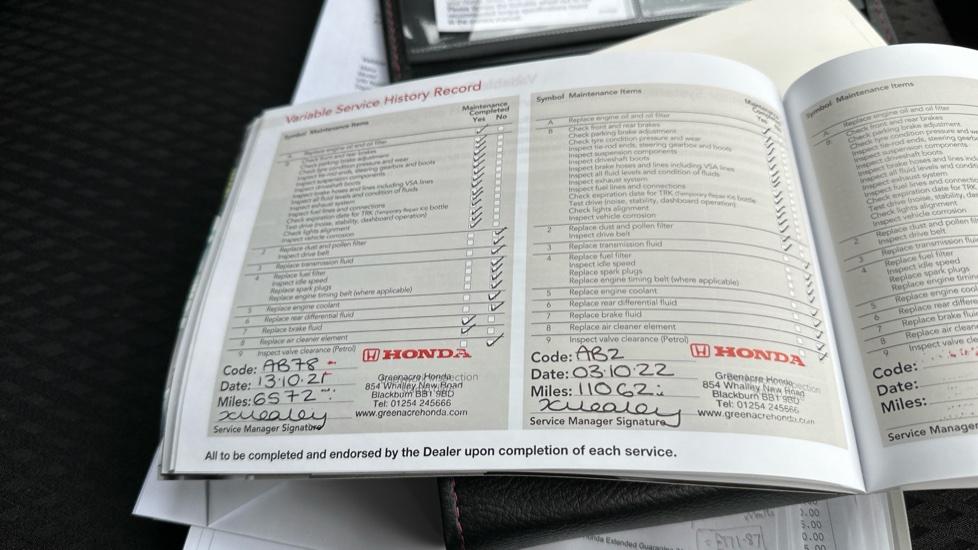 Variable Service History Record
Symbol Maintenance Items
Maintenance
Completed
Yes No
A Replace engine oil and oil filter
B Check front and rear brakes
Check parking brake adjustment
Check tyre condition pressure and wear
Inspect tie-rod ends, steering gearbox and boots
Inspect suspension components
Inspect driveshaft boots
Inspect brake hoses and lines including VSA lines
Inspect all fluid levels and condition of fluids
Inspect exhaust system
Inspect fuel lines and connections
Check expiration date for TRK (Temporary Repair Ice bottle
Test drive (noise, stability, dashboard operation)
Check lights alignment
Inspect vehicle corrosion
2 Replace dust and pollen filter
Inspect drive belt
3 Replace transmission fluid
4 Replace fuel filter
Inspect idle speed
Replace spark plugs
Replace engine timing belt (where applicable)
5 Replace engine coolant
6 Replace rear differential fluid
7 Replace brake fluid
8 Replace air cleaner element
9 Inspect valve clearance (Petrol)
Code: AB78
Date: 13·10·21
Miles: 6572
Service Manager Signature
HONDA
Greenacre Honda
854 Whalley New Road
Blackburn BB1 9BD
Tel: 01254 245666
www.greenacrehonda.com
Symbol Maintenance Items
Yes No
A Replace engine oil and oil filter
B Check front and rear brakes
Check parking brake adjustment
Check tyre condition pressure and wear
Inspect tie-rod ends, steering gearbox and boots
Inspect suspension components
Inspect driveshaft boots
Inspect brake hoses and lines including VSA lines
Inspect all fluid levels and condition of fluids
Inspect exhaust system
Inspect fuel lines and connections
Check expiration date for TRK (Temporary Repair Ice bottle
Test drive (noise, stability, dashboard operation)
Check lights alignment
Inspect vehicle corrosion
2 Replace dust and pollen filter
Inspect drive belt
3 Replace transmission fluid
4 Replace fuel filter
Inspect idle speed
Replace spark plugs
Replace engine timing belt (where applicable)
5 Replace engine coolant
6 Replace rear differential fluid
7 Replace brake fluid
8 Replace air cleaner element
9 Inspect valve clearance (Petrol)
Code: AB2
Date: 03·10·22
Miles: 11062
Service Manager Signature
HONDA
Greenacre Honda
854 Whalley New Road
Blackburn BB1 9BD
Tel: 01254 245666
www.greenacrehonda.com
All to be completed and endorsed by the Dealer upon completion of each service.
Symbol Maintenance Items
A Replace engine oil and oil filter
B Check front and rear brakes
Check parking brake adjustment
Check tyre condition pressure and
Inspect tie-rod ends, steering gearb
Inspect suspension components
Inspect driveshaft boots
Inspect brake hoses and lines
Inspect all fluid levels and
Inspect exhaust system
Inspect fuel lines and connec
Check expiration date for TRK
Test drive (noise, stability, da
Check lights alignment
Inspect vehicle corrosion
2 Replace dust and pollen filter
Inspect drive belt
3 Replace transmission fluid
4 Replace fuel filter
Inspect idle speed
Replace spark plugs
Replace engine timing bel
5 Replace engine cool
6 Replace rear differen
7 Replace brake fluid
8 Replace air cleaner
9 Inspect valve cleara
Code:
Date:
Miles:
Service Manager
Honda Extended Guarantee
5.00
0.00